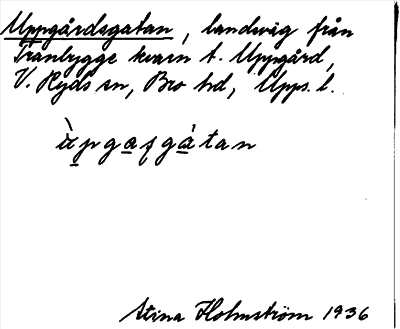 Uppgårdsgatan, landsväg från
Tranbygge kvarn t. Uppgård,
V. Ryds sn, Bro hd, Upps. l.
àpgasgátan
Stina Holmström 1936